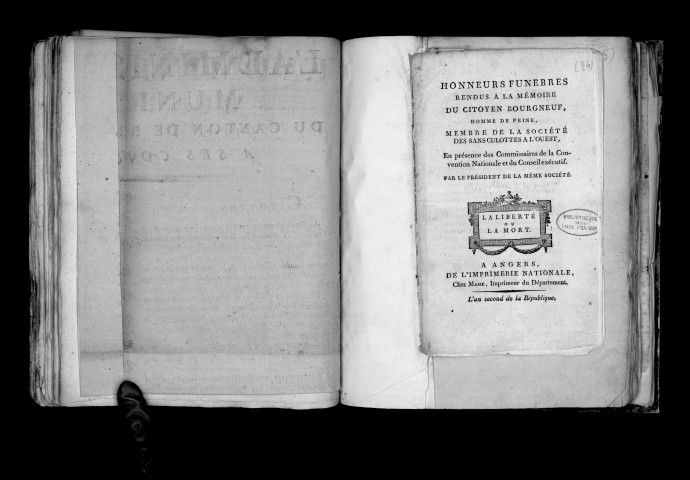 L'ADMINI
MUNI
DU CANTON DE
A SES CON
(94)
HONNEURS FUNÈBRES
RENDUS A LA MÉMOIRE
DU CITOYEN BOURGNEUF,
HOMME DE PEINE,
MEMBRE DE LA SOCIÉTÉ
DES SANS CULOTTES A L'OUEST,
En présence des Commissaires de la Con-
vention Nationale et du Conseil exécutif.
PAR LE PRÉSIDENT DE LA MÊME SOCIÉTÉ.
LA LIBERTÉ
OU
LA MORT.
BIBLIOTHEQUE
VILLE D'ANGERS
A ANGERS,
DE L'IMPRIMERIE NATIONALE,
Chez MAME, Imprimeur du Département.
L'an second de la République,